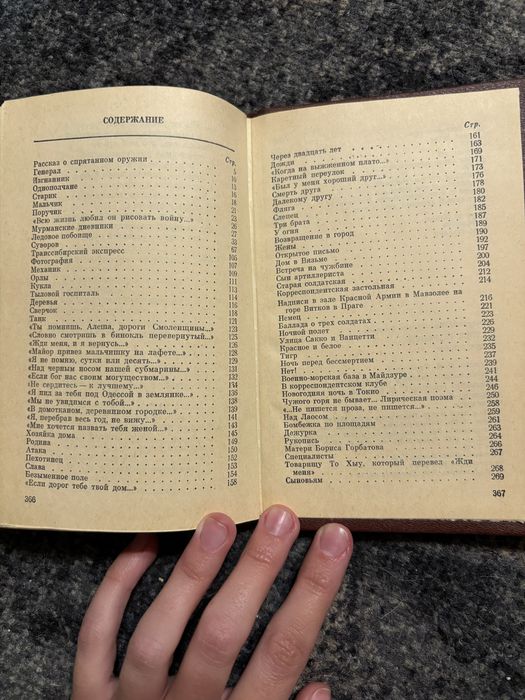 СОДЕРЖАНИЕ
Стр.
Рассказ о спрятанном оружии 5
Генерал 10
Изгнанник 13
Однополчане 16
Старик 18
Мальчик 21
Поручик 23
«Всю жизнь любил он рисовать войну...» 26
Мурманские дневники 27
Ледовое побоище 33
Суворов 67
Транссибирский экспресс 105
Фотография 107
Механик 109
Орлы 111
Кукла 113
Тыловой госпиталь 114
Деревья 116
Сверчок 118
Танк 121
«Ты помнишь, Алеша, дороги Смоленщины...» 123
«Словно смотришь в бинокль перевернутый...» 125
«Жди меня, и я вернусь...» 126
«Майор привез мальчишку на лафете...» 128
«Я не помню, сутки или десять...»
«Над черным носом нашей субмарины...» 131
«Если бог нас своим могуществом...» 132
«Не сердитесь — к лучшему...» 134
«Я пил за тебя под Одессой в землянке...» 136
«Мы не увидимся с тобой...» 138
«В домотканом, деревянном городке...» 139
«Я, перебрав весь год, не вижу...» 141
«Мне хочется назвать тебя женой...» 143
Хозяйка дома 145
Родина 149
Атака 150
Пехотинец 152
Слава 153
Безыменное поле 154
«Если дорог тебе твой дом...» 158
366
Стр.
Через двадцать лет 161
Дожди 163
«Когда на выжженном плато...» 169
Каретный переулок 171
«Был у меня хороший друг...» 173
Смерть друга 176
Далекому другу 178
Фляга 180
Слепец 182
Три брата 185
У огня 187
Возвращение в город 189
Жены 190
Открытое письмо 192
Дом в Вязьме 197
Встреча на чужбине 200
Сын артиллериста 204
Старая солдатская 212
Корреспондентская застольная 214
Надписи в зале Красной Армии в Мавзолее на
горе Витков в Праге 216
Немец 221
Баллада о трех солдатах
Ночной полет 226
Улица Сакко и Ванцетти 229
Красное и белое 232
Тигр 235
Ночь перед бессмертием 237
Нет! 239
Военно-морская база в Майдзуре 241
В корреспондентском клубе 244
Новогодняя ночь в Токио 246
Чужого горя не бывает... Лирическая поэма 250
«...Не пишется проза, не пишется...» 258
Над Лаосом 259
Бомбежка по площадям 261
Дежурка 263
Рукопись 264
Матери Бориса Горбатова 266
Специалисты 267
Товарищу То Хыу, который перевел «Жди
меня» 268
Сыновьям 269
367